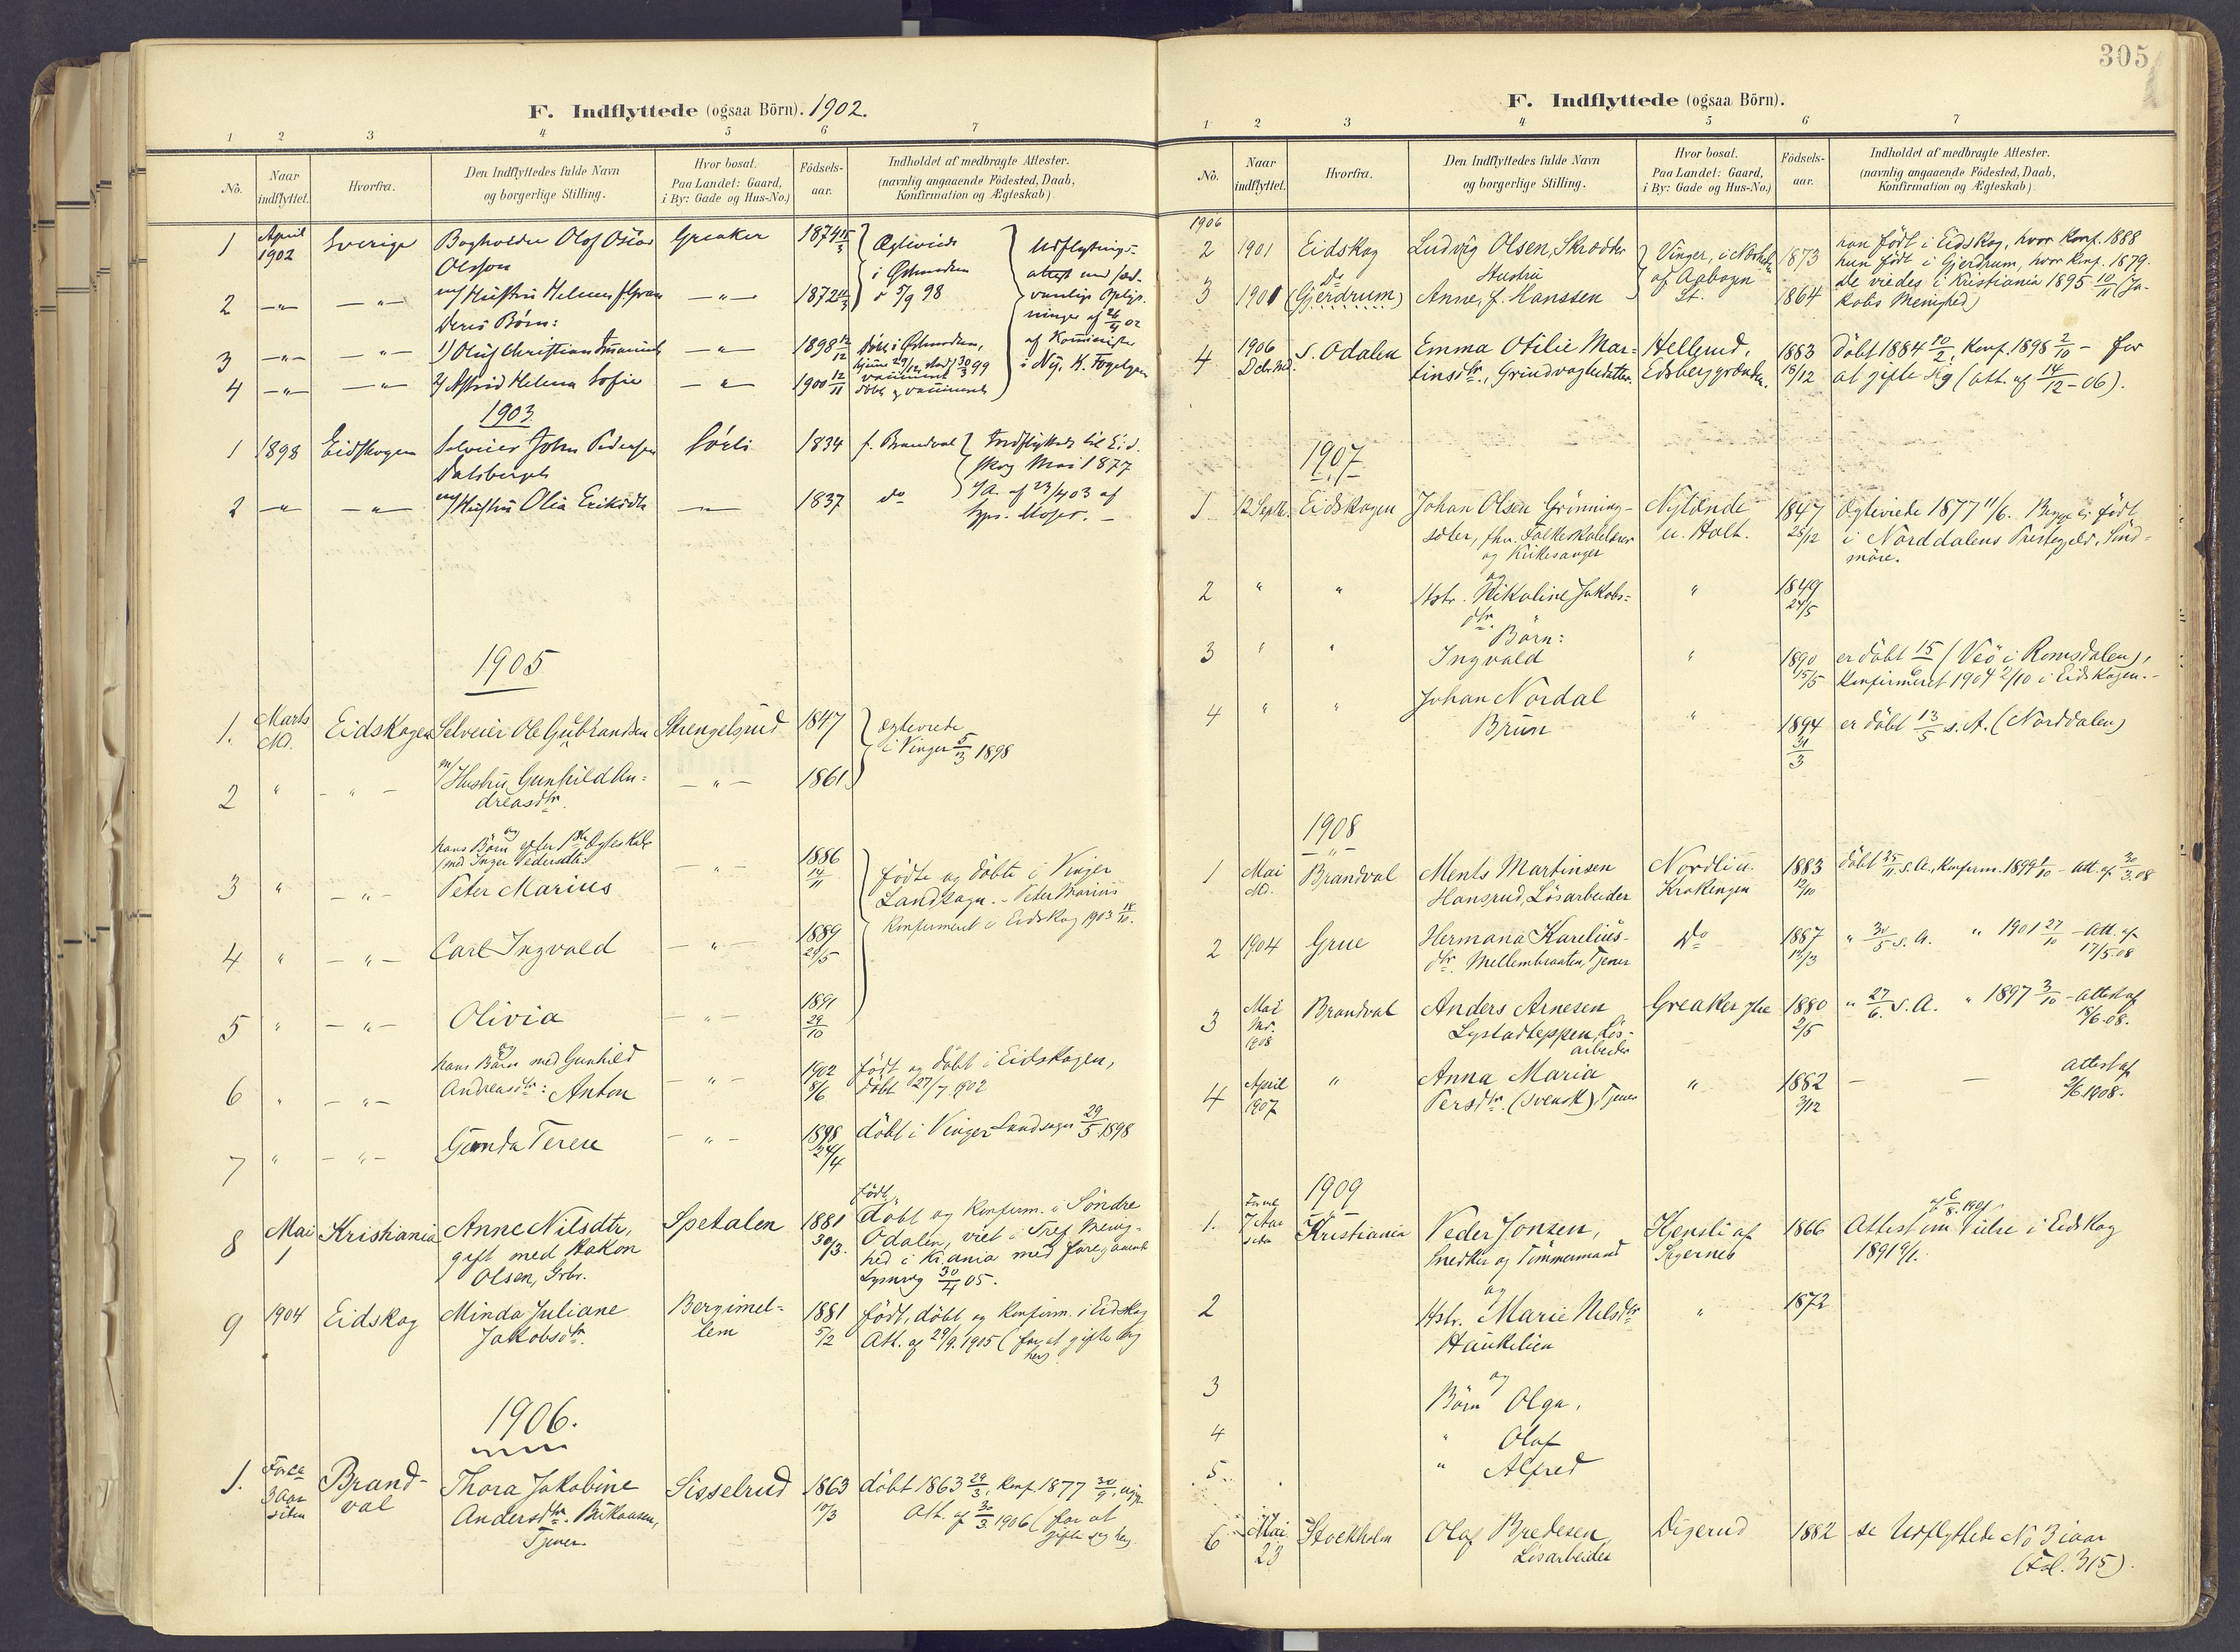 305
F. Indflyttede (ogsaa Börn). 1902.
1 2 3 4 5 6 7
No. Naar indflyttet. Hvorfra. Den Indflyttedes fulde Navn og borgerlige Stilling. Hvor bosat. Paa Landet: Gaard, i By: Gade og Hus-No.) Födsels-aar. Indholdet af medbragte Attester. (navnlig angaaende Födested, Daab, Konfirmation og Ægteskab)
1 April 1902 Sverige Bogholder Olof Oscar Olsson Greaker 1874 15/3 Ægteviede
2 -"- -"- m/ Hustru Helene f. 1872 i 5/9 98
Udflytnings-
attest
Deres Börn:
3 -"- -"- 1) Oluf Christian -"- 1898 12/12
4 -"- -"- 2) Astrid Helena Sofie -"- 1900 12/11
1903
1 1898 Eidskogen Selveier John Pedersen Sörli 1834 f. Brandval Indflyttede til Eid-
skog Mai 1877
2 -"- -"- m/ Hustru Olia Eriksdtr -"- 1837 do af 23/4 03 af
1905
1. Marts Md. Eidskogen Selveier Ole Gulbrandsen Strengelsrud 1847 ægteviede
i Vinger 5/3 1898
2 " - " - m/ Hustru Gunhild An-
dreasdtr. - " - 1861
og
hans Börn efter 1ste Ægteskab
med Inger Pedersdtr:
3 " - " - Peter Marius - " - 1886 14/11 födte og döbte i Vinger
Landsogn. - Peter Marius
konfirmeret i Eidskog 1903 18/10.
4 " - " - Carl Ingvald - " - 1889 29/5
5 " - " - Olivia - " - 1891 29/10
og
hans Börn med Gunhild
6 " - " - Andreasdtr: Anton - " - 1902 8/6 födt og döbt i Eidskogen,
döbt 27/7 1902
7 " - " - Gunda Terese - " - 1898 24/4 döbt i Vinger Landsogn 29/5 1898
8 Mai 1 Kristiania Anne Nilsdtr, Spetalen 1881 30/3. födt,
döbt og Konfirm. i Söndre
gift med Hakon
Olsen, Grbr.
Odalen, viet i Menig-
hed i Kr.ania med foregaaende
Lysning 30/4 05.
9 1904 Eidskog Minda Juliane
Jakobsdtr. Bergimel-
lem 1881 5/2 födt, döbt og Konfirm. i Eidskog
Att. af 29/9. 1905 (for at gifte sig
her)
1906.
1. 3 Aar siden Brand-
val Thora Jakobine
Andersdtr.
Tjener. Sisselrud 1863 10/3 döbt 1863 29/3, Konf. 1877 30/9, ugift
Att. af 30/3 1906 (for at
gifte sig her)
F. Indflyttede (ogsaa Börn).
1 2 3 4 5 6 7
No. Naar indflyttet. Hvorfra. Den Indflyttedes fulde Navn og borgerlige Stilling. Hvor bosat. Paa Landet: Gaard, i By: Gade og Hus-No.) Födsels-aar. Indholdet af medbragte Attester. (navnlig angaaende Födested, Daab, Konfirmation og Ægteskab)
1906
2 1901 Eidskog Ludvig Olsen, Skrædder Vinger, i 1873 han födt i Eidskog, hvor Konf. 1888
Hustru af Aabogen
hun födt i Gjerdrum, hvor Konf. 1879.
3 1901 do (Gjerdrum) Anne, f. Hanssen St. 1864 De viedes i Kristiania 1895 10/11 (Ja-
kobs Menighed)
4 1906 S. Odalen Emma Otilie Mar-
tinsdtr., Hellerud, 1883 18/12 Döbt 1884 10/2, Konf. 1898 2/10 - for
at gifte sig (att. af 14/12-06).
1907
1 Septb. Eidskogen Johan Olsen Grönning-
sæter, fhv. Folkeskolelærer
og Kirkesanger Nylænde
u. Holt. 1847 25/12 Ægteviede 1877 11/6. Begge er födt
i Norddalens Præstegjeld, Sönd-
möre.
og
2 " " Hstr. Nikoline Jakobs-
dtr. " 1849 24/5
Börn:
3 " " Ingvald " 1890 15/5 er döbt 15/6 (Veö i Romsdalen),
Konfirmeret 1904 2/10 i Eidskogen. -
4 " " Johan Nordal
Brun " 1894 31/3 er döbt 13/5 s. A. (Norddalen)
1908
1 Mai Md. Brandval Ments Martinsen
Hansrud, Lösarbeider Nordli u.
Krokengen 1883 12/10 döbt 25/11 s. A., Konfirm. 1899 1/10 - att. af 30/3.08
2 1904 Grue Hermana Karelius-
dtr. Mellembraaten, Tjener Do 1887 " 30/5 s. A. " 1901 27/10 - att. af
17/5.08
3 Mai Md. 1908 Brandval Anders Arnesen
Lystadteppen, Lös-
arbeider Greaker 1880 2/5 " 27/6. s. A. " 1897 3/10 - attest af
18/6.08.
4 April 1907 " Anna Maria
Persdtr. (svensk), Tjener " 1882 3/12 - - attest af
2/6 1908.
1909
1. 7 Aar siden Kristiania Peder Jonsen,
Snedker og Tömmermand Kjensli af
Sagernes 1866 Attest om Vielse i Eidskog
1891
og
2 Hstr. Marie Nilsdtr " 1872
Haukelien
og
3 Börn Olga,
4 " Olaf
5. " Alfred
6 Mai 23 Stockholm Olaf Bredesen
Lösarbeider Digerud 1882 se Udflyttede No 3 iaar
(Fol. 315).